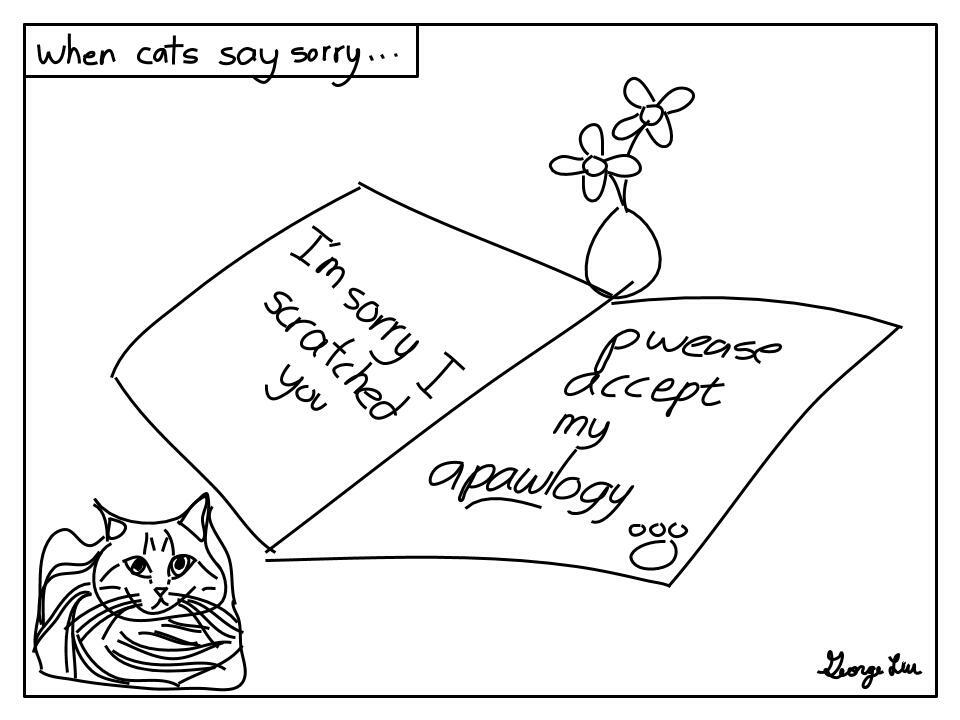 When cats say sorry...
I'm sorry I
scratched
you
pwease
accept
my
apawlogy
George Liu